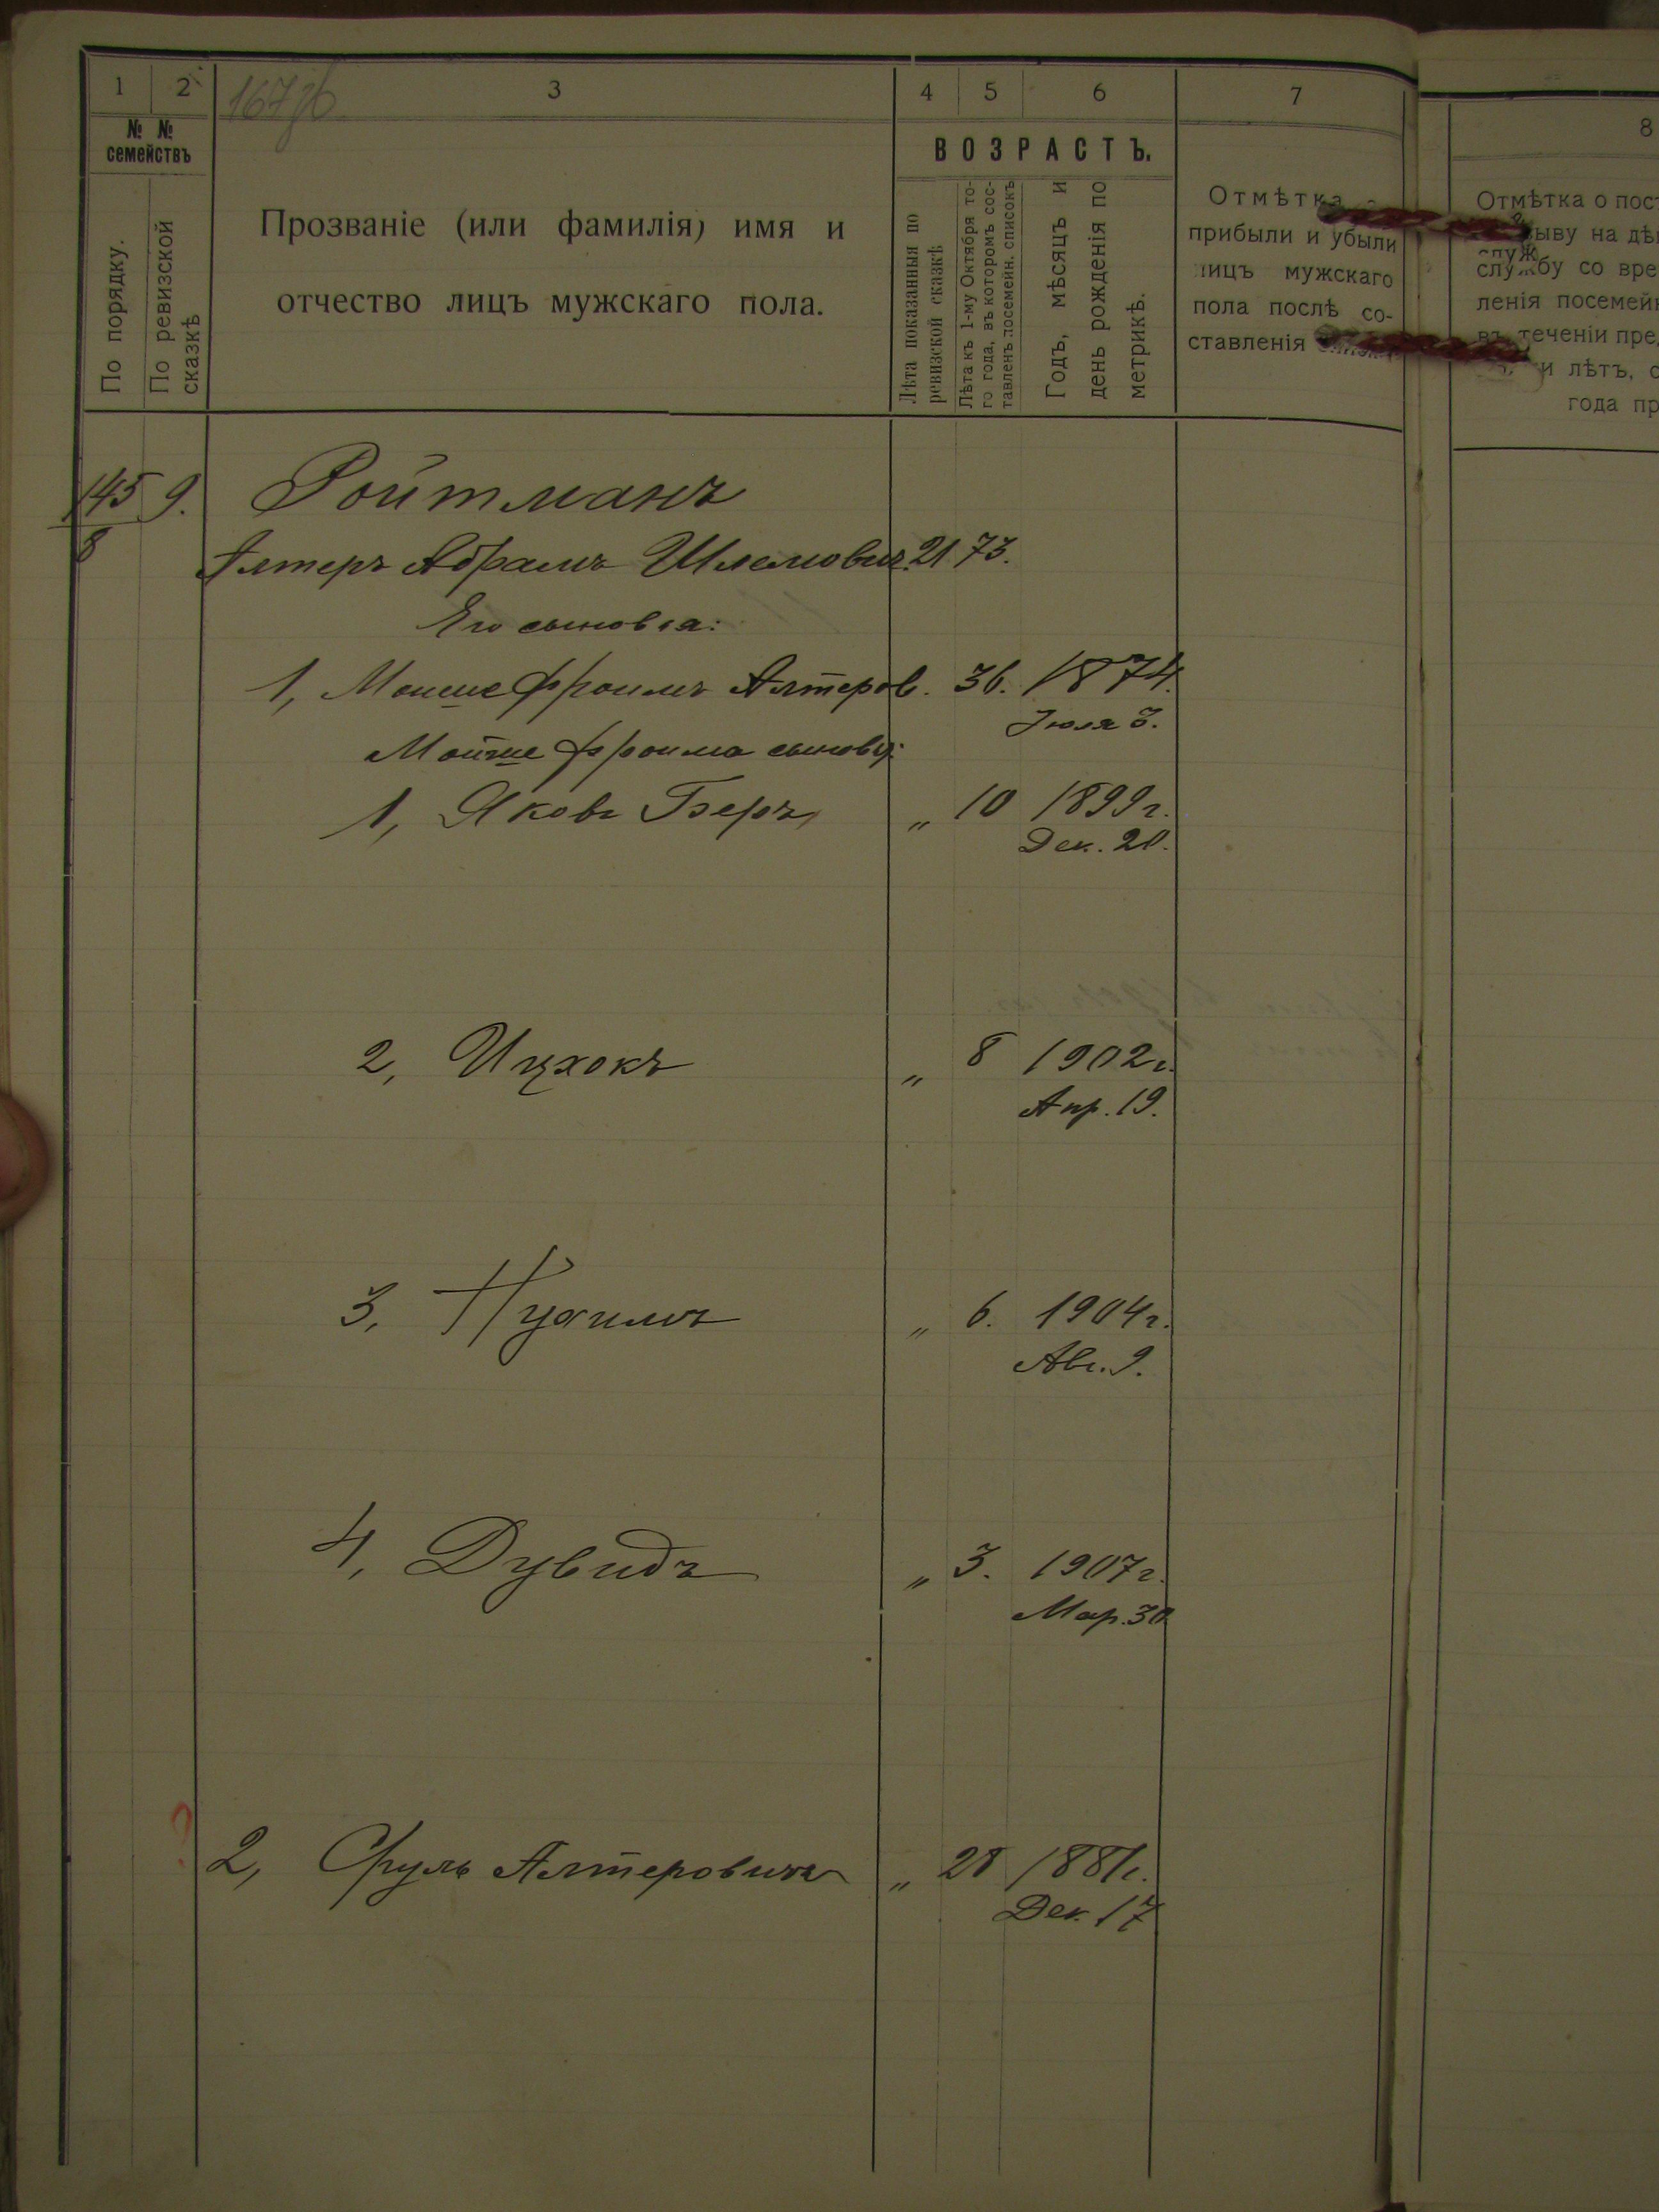 1 2 3 4 5 6 7
8
№ № семействъ
По порядку.
По ревизской сказкѣ
Прозваніе (или фамилія) имя и
отчество лицъ мужскаго пола.
ВОЗРАСТЪ.
Лѣта показанныя по
ревизской сказкѣ
Лѣта къ 1-му Октября то-
го года, въ которомъ сос-
тавленъ посемейн. списокъ
Годъ, мѣсяцъ и
день рожденія по
метрикѣ.
Отмѣтка
прибыли и убыли
лицъ мужскаго
пола послѣ со-
ставленія
Отмѣтка о пос
ыву на дѣ
службу со вре
ленія посемей
въ теченіи пре
и лѣтъ, с
года пр
145 9. Ройтманъ
8
Алтеръ Абрамъ Шлемович. 21 73.
Его сыновья:
1, Моише Фроимъ Алтеров. 36. 1874.
Іюля 3.
Мойше Фроима сыновья:
1, Яковъ Беръ „ 10 1899г.
Дек. 20.
2, Ицхокъ „ 8 1902г.
Апр. 19.
3, Нухимъ „ 6. 1904г.
Авг. 9.
4, Дувидъ „ 3. 1907г.
Мар. 30
2, Сруль Алтеровичъ „ 28 1881г.
Дек. 17